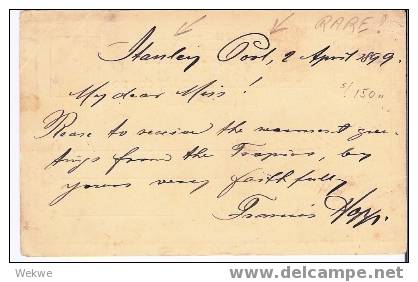 RARE!
Stanley Pool, 2 April 1899.
My dear Miss!
5/150.-
Please to receive the warmest gree-
tings from the Tropics, by
yours very faithfully
Francis
Wekwe
www.delcampe.net